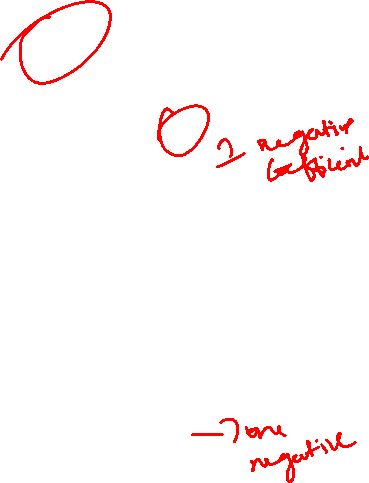 negative
coefficient
one
negative